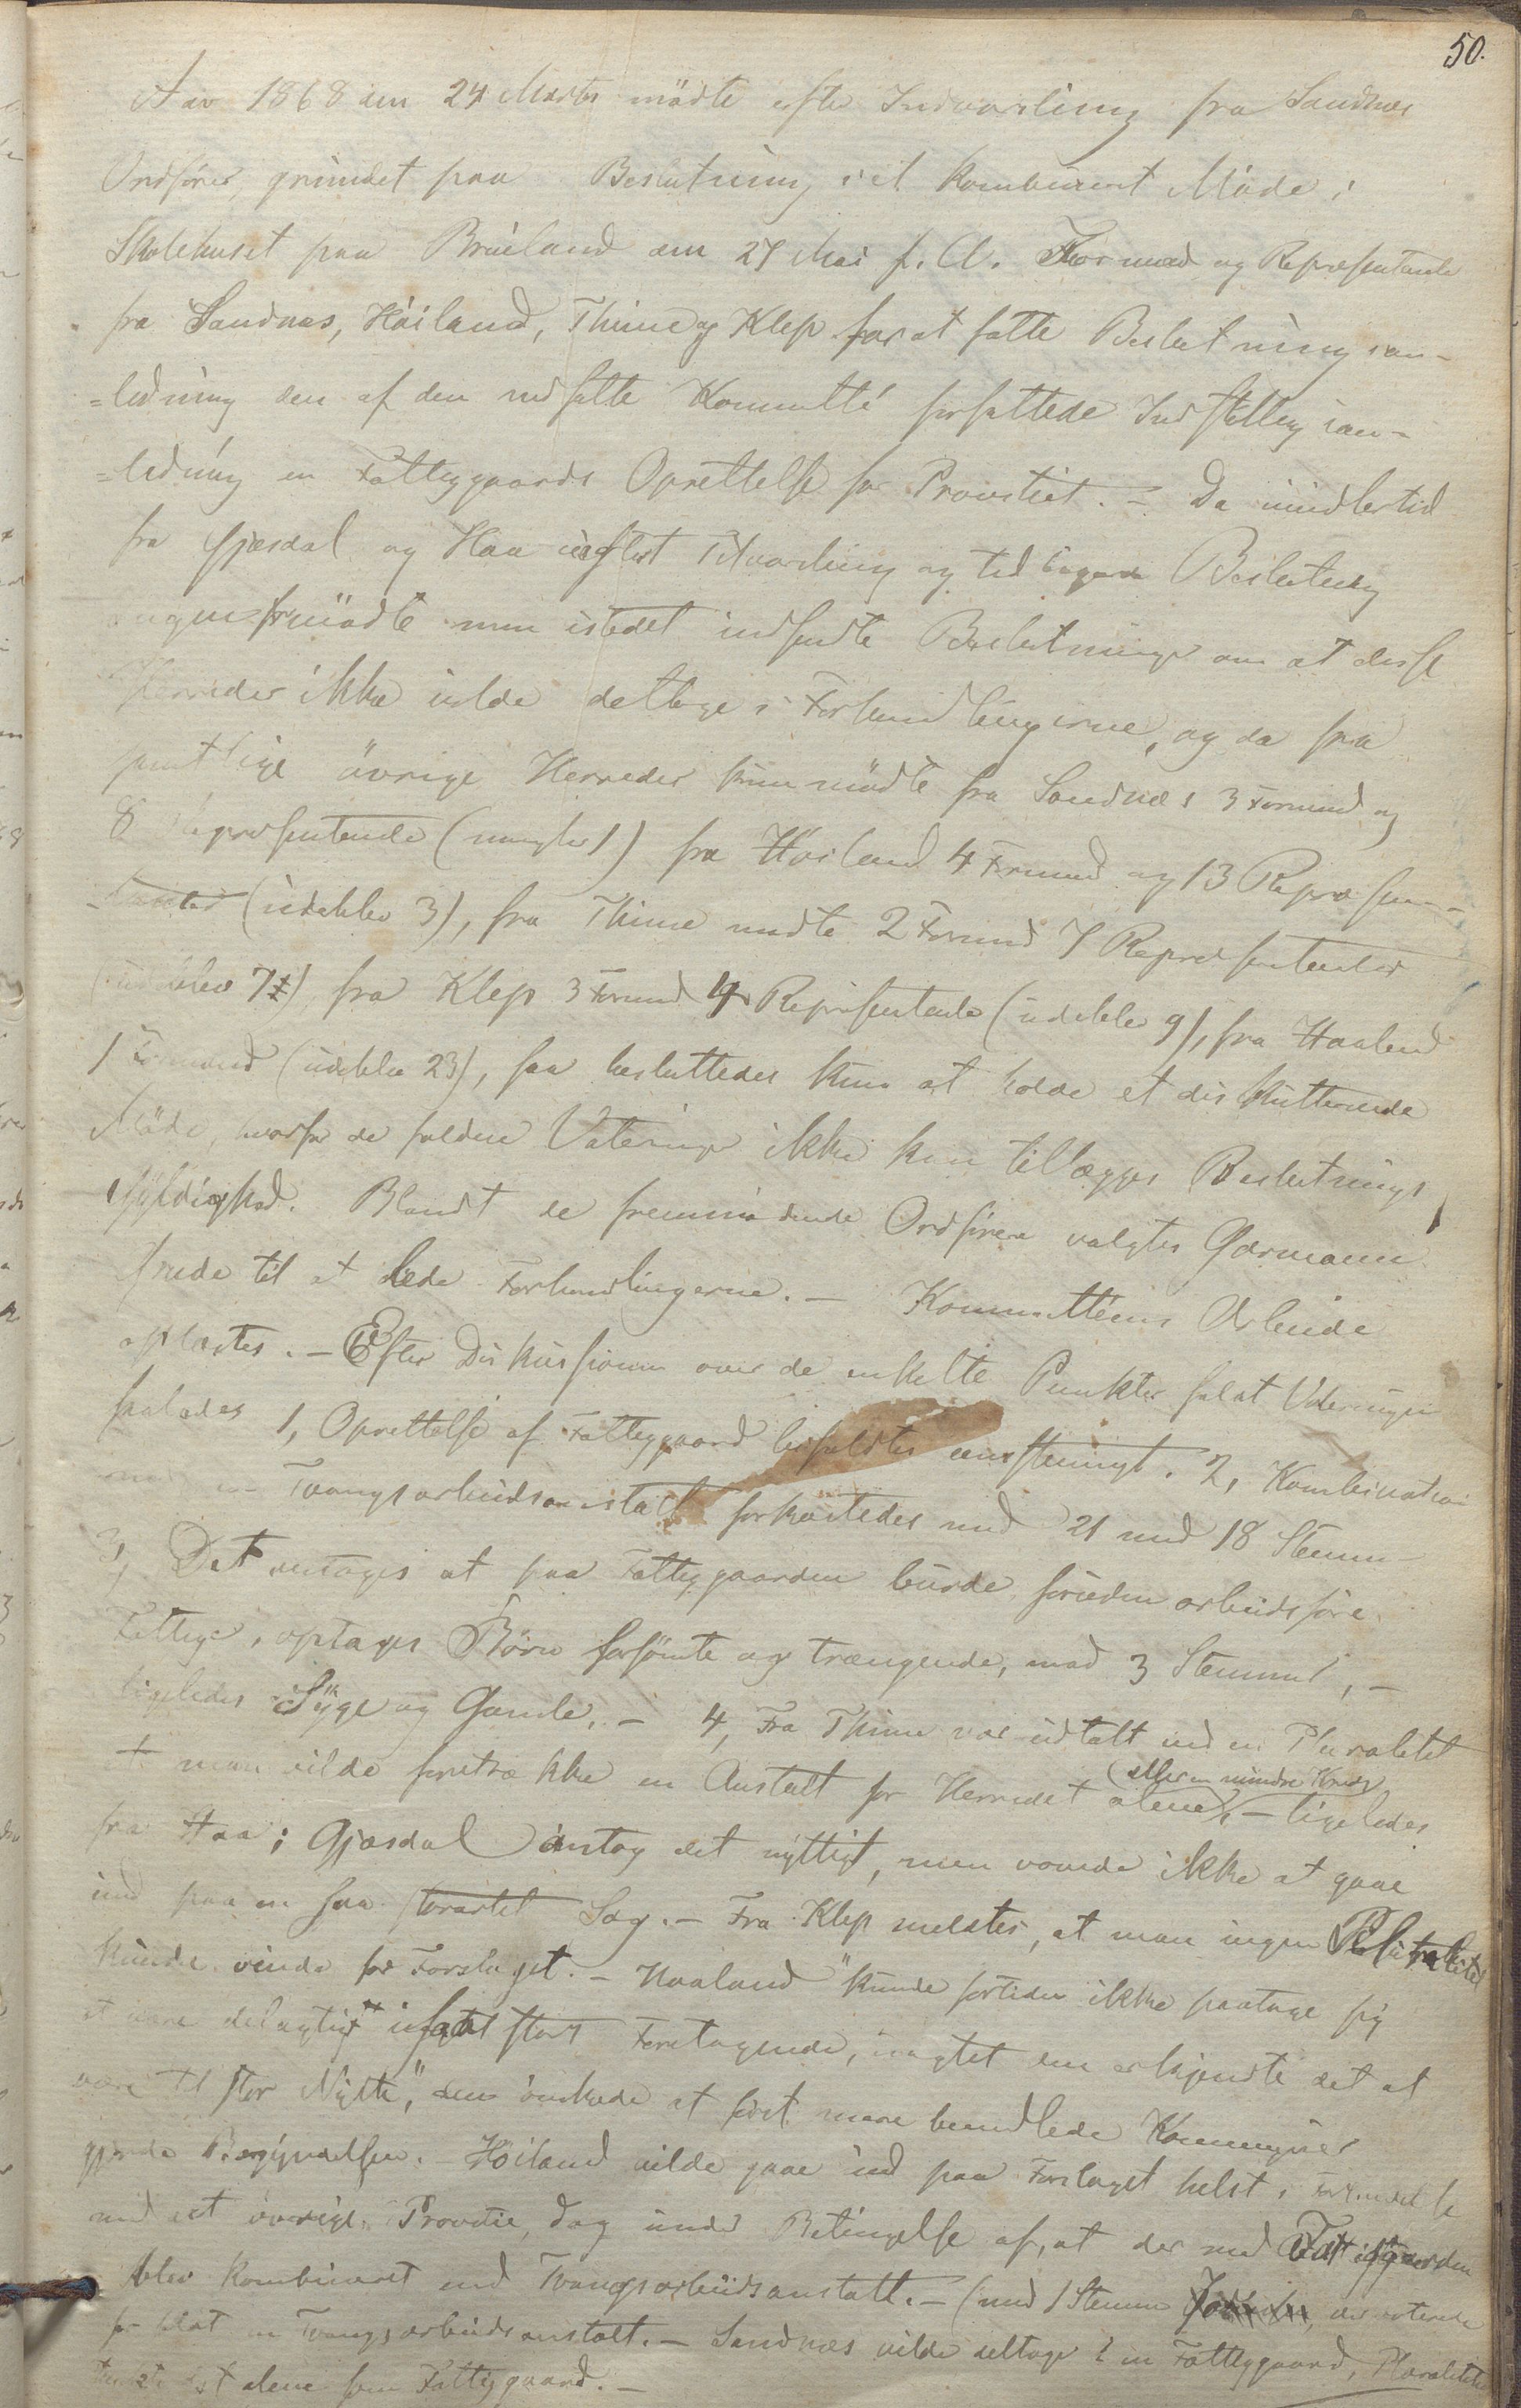 50.
Aar 1868 den 24 Marts mödte efter Indvarsling fra Sandnes
Ordförer, grundet paa Beslutning i et kombineret Möde i
Skolehuset paa Brueland den 27 Mai f. A. Formænd og Repræsentanter
fra Sandnæs, Höiland, Thime og Klep for at fatte Beslutning ian-
=ledning den af den nedsatte Kommitté forfattede Indstilling ian-
=ledning en Fattiggaards Oprettelse for Provstiet. - Da imidlertid
fra Gjæsdal og Haa uagtet Tilvarsling og tidligere Beslutning
ingen fremmödte men istedet indsendte Beslutninger om at disse
Herreder ikke vilde deltage i Forhandlingerne, og da fra
samtlige övrige Herreder kun mödte fra Sandnæs 3 Formænd og
8 Repræsentanter (mangler 1) fra Höiland 4 Formænd og 13 Repræsen-
-tanter (udeblev 3), fra Thime mödte 2 Formænd 7 Repræsentanter
(udeblev 7) fra Klep 3 Formænd 4 Repræsentanter (udeblev 9), fra Haaland
1 Formand (udeblev 23), saa besluttedes kun at holde et diskutterende
Möde, hvorfor de faldne Voteringer ikke kan tillægges Beslutnings
Gyldighed. Blandt de fremmödende Ordförere valgtes Gjermann
til at lede Forhandlingerne. - Kommitteens Arbeide
oplæstes. - Efter Diskussionen over de enkelte Punkter faldt Voteringen
saaledes 1, Oprettelse af Fattiggaard bifaldtes eenstemmigt. 2, Kombination
med en Tvangsarbeidsanstalt forkastedes med 21 mod 18 Stemmer
3, Det antages at paa Fattiggaarden burde, foruden arbeidsföre
Fattige, optages Börn forsömte og trængende, mod 3 Stemmer, -
ligeledes Syge og Gamle. - 4, Fra Thime var udtalt ved en Pluralitet
at man vilde foretrække en Anstalt for Herredet alene (eller en mindre Kreds), - ligeledes
fra Haa; Gjæsdal antog det nyttigt, men vovede ikke at gaae
ind paa en saa storartet Sag. - Fra Klep meldtes, at man ingen Pluralitet
kunde vinde for Forslaget. - Haaland "kunde fortiden ikke paatage sig
at være delagtig" i saa stort Foretagende, uagtet den erkjendte det at
være til stor Nytte," den önskede at först mere bemidlede Kommuner
gjorde Begyndelsen. - Höiland vilde gaae ind paa Forslaget helst i Forbindelse
med det övrige Provstie, dog under Betingelse af, at der med Fattiggaarden
blev kombineret en Tvangsarbeidsanstalt. - (mod 1 Stemme der voterede
for blot en Tvangsarbeidsanstalt. - Sandnæs vilde deltage i en Fattiggaard, Pluraliteten
det alene som Fattiggaard. -